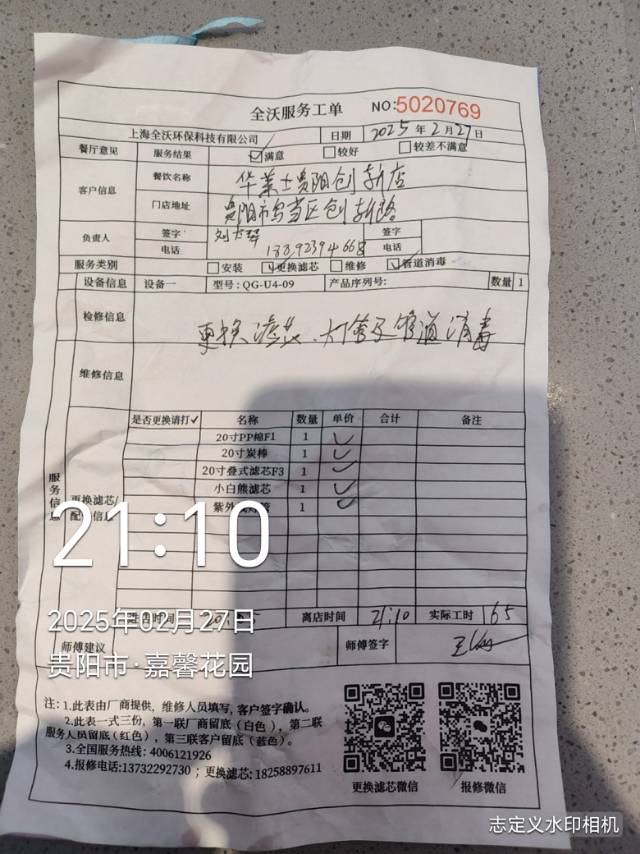 全沃服务工单 NO:5020769
上海全沃环保科技有限公司 日期 2025年2月27日
餐厅意见 服务结果 ☑满意 □较好 □较差不满意
客户信息 餐饮名称 华莱士贵阳创新店
门店地址 贵阳市乌当区创新路
负责人 签字 签字
电话 电话
服务类别 □安装 ☑更换滤芯 □维修 ☑管道消毒
设备信息 设备一 型号:QG-U4-09 产品序列号: 数量 1
检修信息 更换滤芯、灯管及管道消毒
维修信息
是否更换请打✓ 名称 数量 单价 合计 备注
20寸PP棉F1 1 ✓
20寸炭棒 1 ✓
20寸叠式滤芯F3 1 ✓
小白熊滤芯 1 ✓
紫外 1 ✓
服务信息 更换滤芯/
21:10
离店时间 21:10 实际工时 165
2025年02月27日
师傅建议 师傅签字
贵阳市·嘉馨花园
注: 1.此表由厂商提供, 维修人员填写, 客户签字确认。
2.此表一式三份, 第一联厂商留底(白色), 第二联
服务人员留底(红色), 第三联客户留底(蓝色)。
3.全国服务热线: 4006121926
4.报修电话:13732292730 ; 更换滤芯: 18258897611
更换滤芯微信 报修微信
志定义水印相机